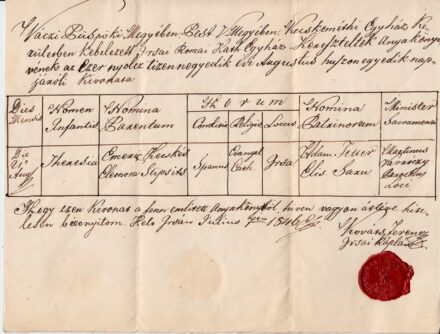 Váczi Püspöki Megyében Pest V. Megyében Kecskeméthi Egyház Ke
rületben Kebelezett Irsai Romai Kath. Egyház Keresztelték Anyakönyv
ének az Ezer nyolcz tizennegyedik évi Augustus huszon egyedik nap
járóli Kivonata
Dies Mensis | Nomen Infantis | Nomina Parentum | Horum Conditio | Religio | Locus | Nomina Patrinorum | Minister Sacramenti
Die 21 Aug. | Theresia | Emeric Kecskés Eleonora Sipsits | Spanus | Evangel. Cath. | Irsa | Adam Teuer Elis Saxu | Valentinus
Loci
Hogy ezen Kivonat a fenn emlitett Anyakönyvből hiven vagyon
bizonyitom. Kelt Irsán Julius 1846
Kovács Ferencz
Irsai Káplán